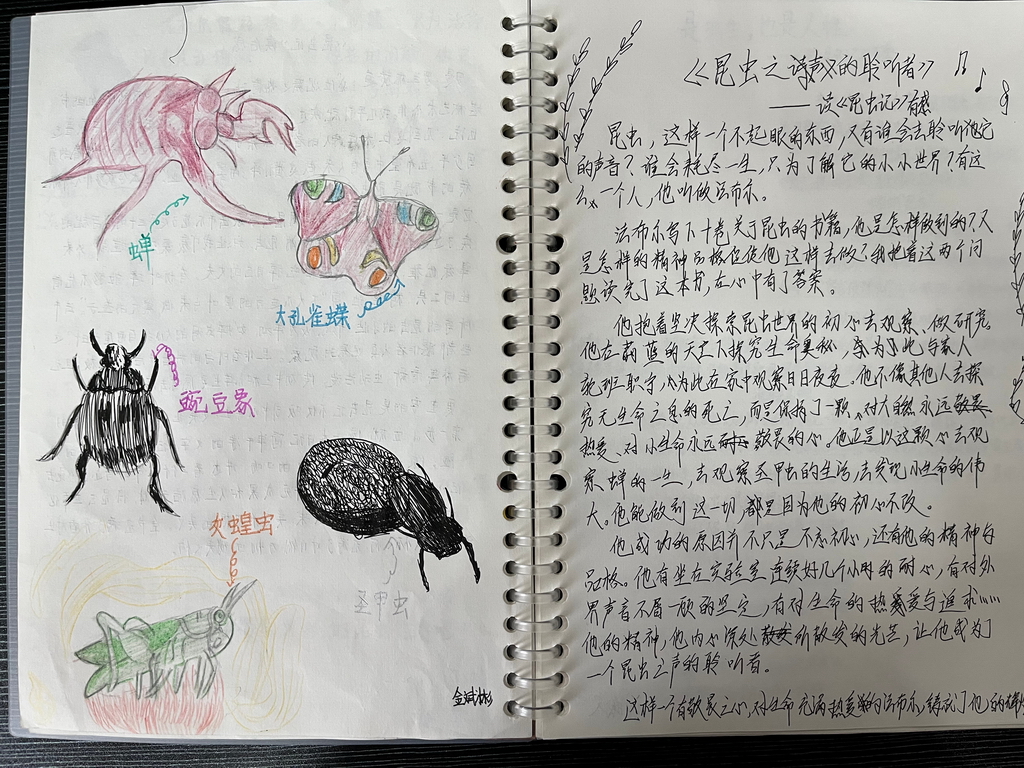 蝉
大孔雀蝶
豌豆象
火蝗虫
圣甲虫
《昆虫之诗声的聆听者》
——读《昆虫记》有感
昆虫，这样一个不起眼的东西，又有谁会去聆听它
的声音？谁会耗尽一生，只为了解它的小小世界？有这
么一个人，他叫做法布尔。
法布尔写下十卷关于昆虫的书籍，他是怎样做到的？又
是怎样的精神品格促使他这样去做？我抱着这两个问
题读完了这本书，在心中有了答案。
他抱着坚决探索昆虫世界的初心去观察、做研究。
他在蔚蓝的天空下探究生命奥秘，
为此在家中观察日日夜夜。他不像其他人去探
究无生命之息的死亡，而是保持了一颗对大自然永远
热爱、对小生命永远敬畏的心。他正是以这颗心去观
察蝉的一生，去观察圣甲虫的生活，去发现小生命的伟
大。他能做到这一切，都是因为他的初心不改。
他成功的原因并不只是不忘初心，还有他的精神与
品格。他有坐在实验室连续好几个小时的耐心，有对外
界声音不屑一顾的坚定，有对生命的热爱与追求……
他的精神，他内心深处所散发的光芒，让他成为了
一个昆虫之声的聆听者。
这样一个有敬畏之心，对生命充满热爱的法布尔，铸就了他的